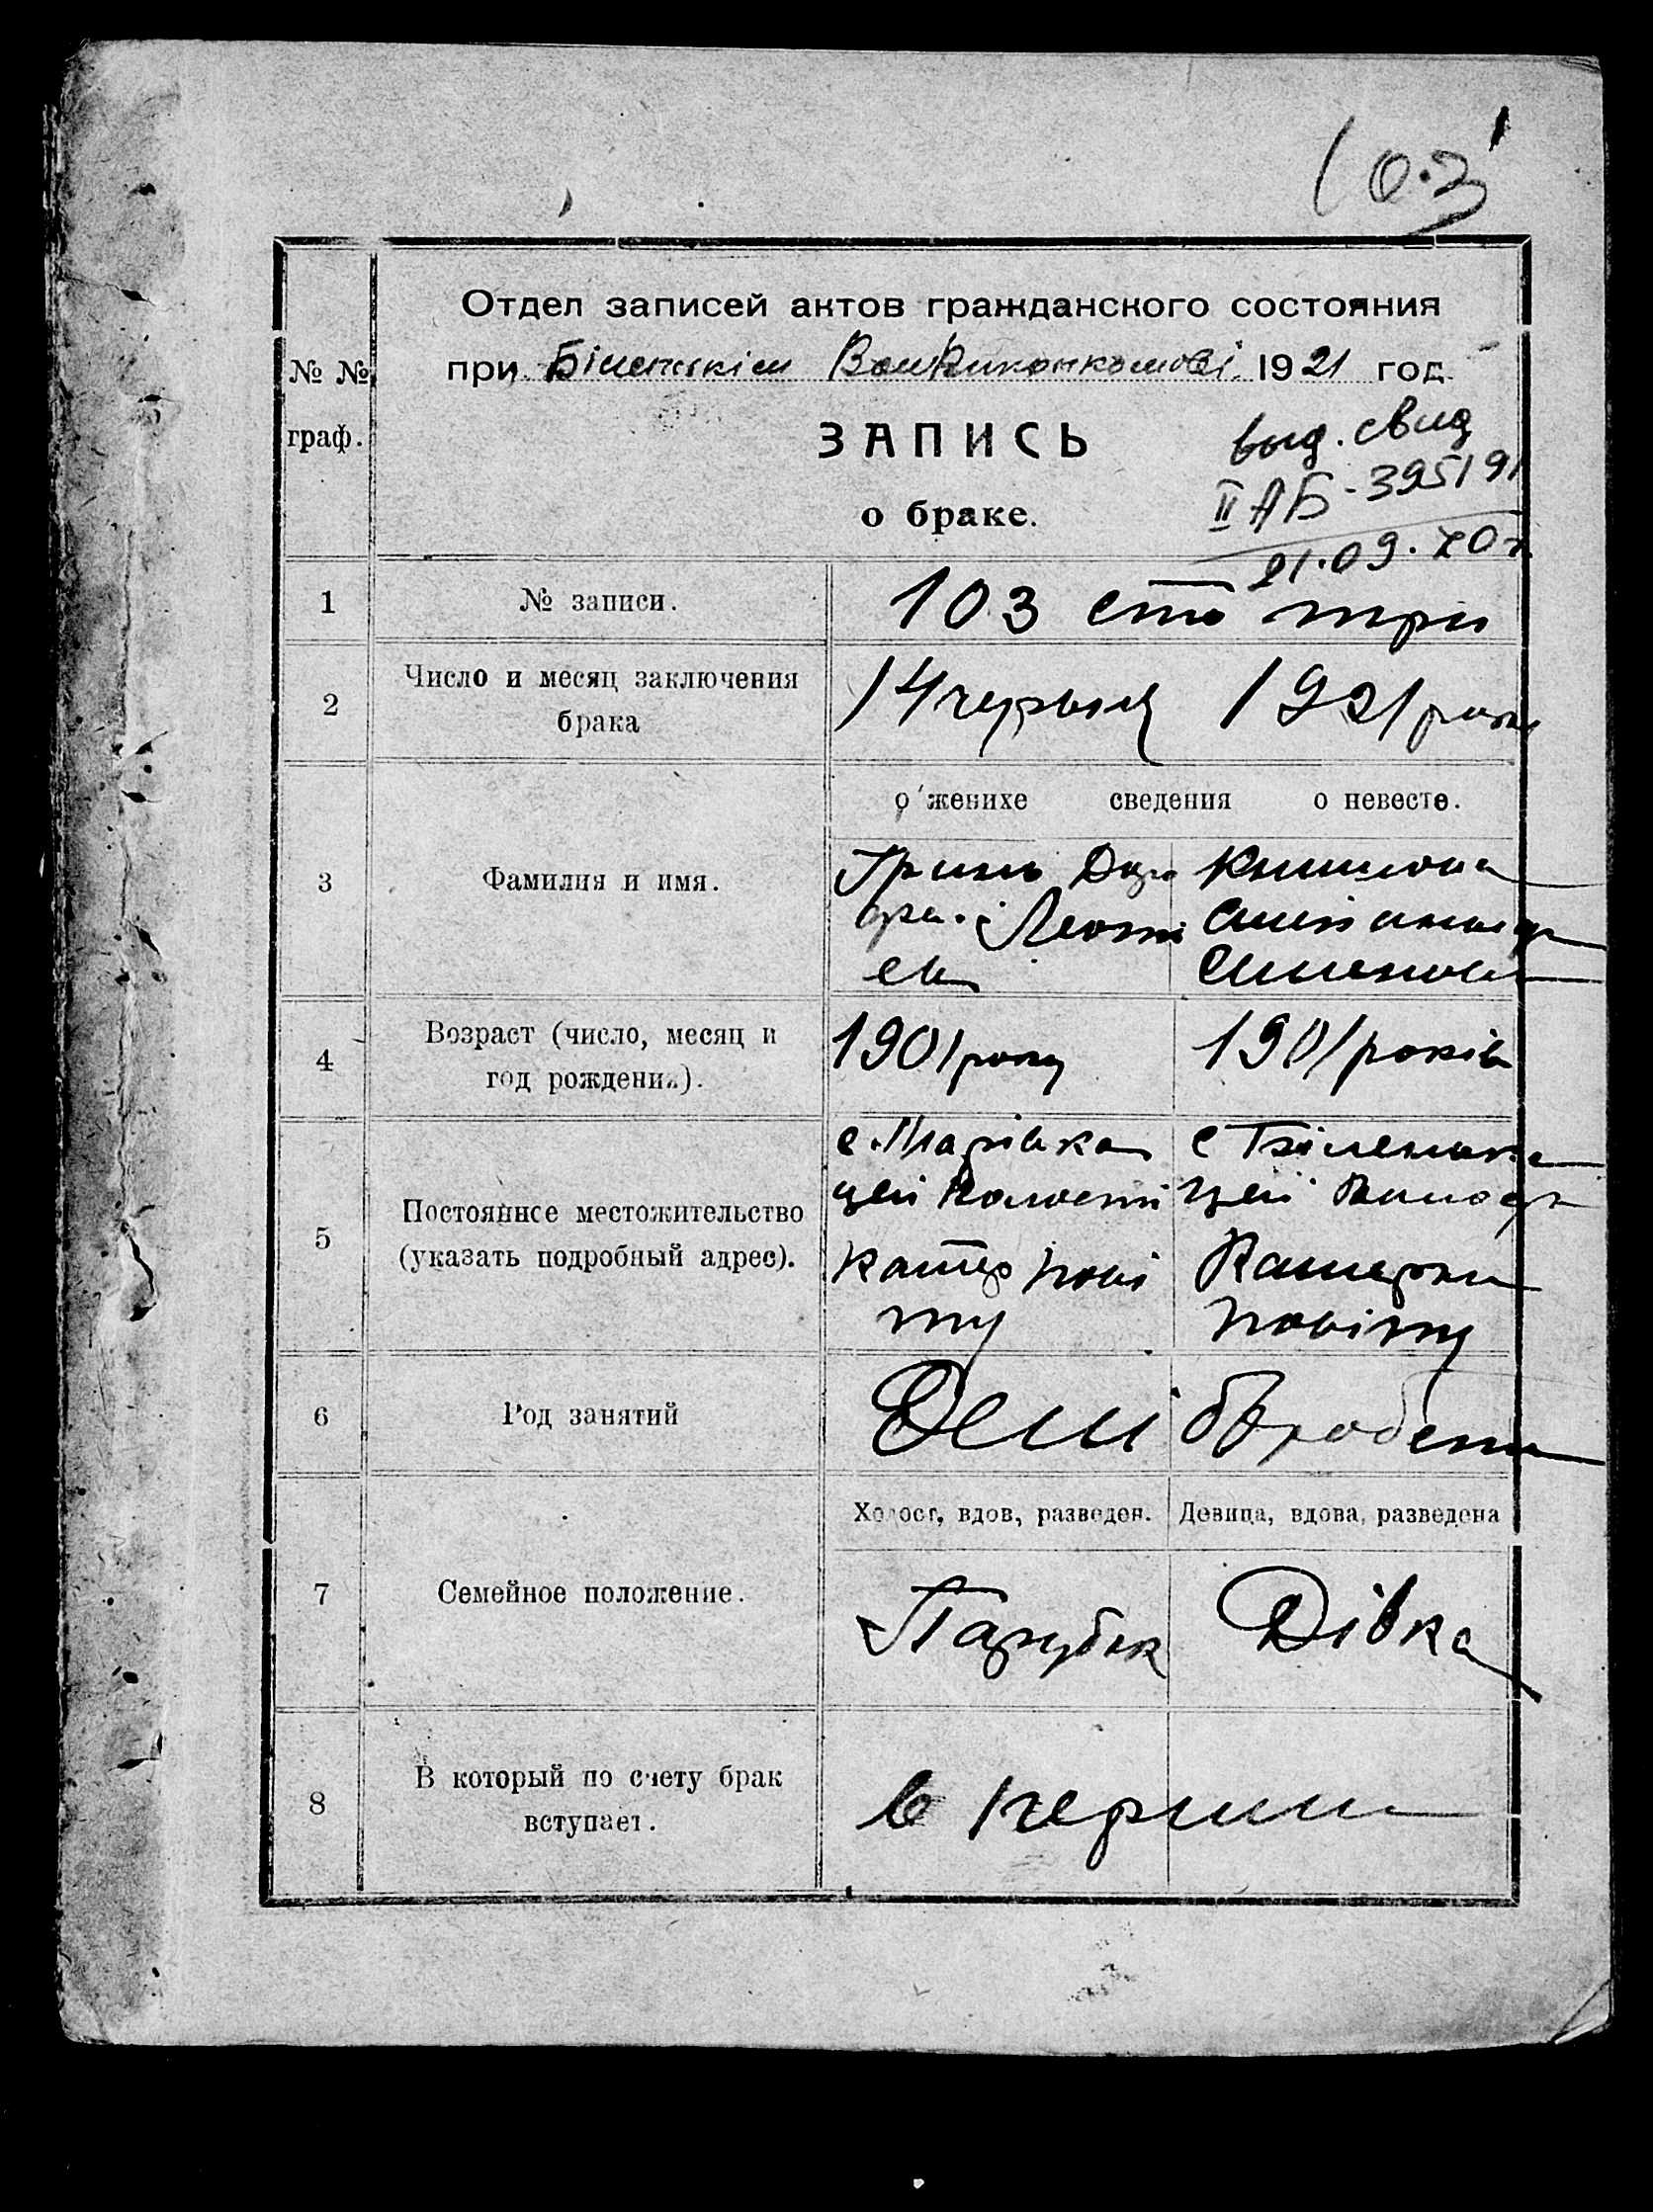 103
Отдел записей актов гражданского состояния
№ №
граф.
при Біленькім Волвиконкомові 1921 год
ЗАПИСЬ
о браке.
выд. свид
II АБ - 395191
21.09.70г
1 № записи. 103 сто три
2 Число и месяц заключения
брака
14 червня 1921 року
о женихе сведения о невесте.
3 Фамилия и имя.
Гринь
4 Возраст (число, месяц и
год рождения).
1901 року 1901 років
5 Постоянное местожительство
(указать подробный адрес).
с. Марівка с Біленьке
цеї волости цеї
Катер пові
ту
повіту
6 Род занятий
7 Семейное положение.
Холост, вдов, разведен. Девица, вдова, разведена
Парубок Дівка
8 В который по счету брак
вступает.
в перший